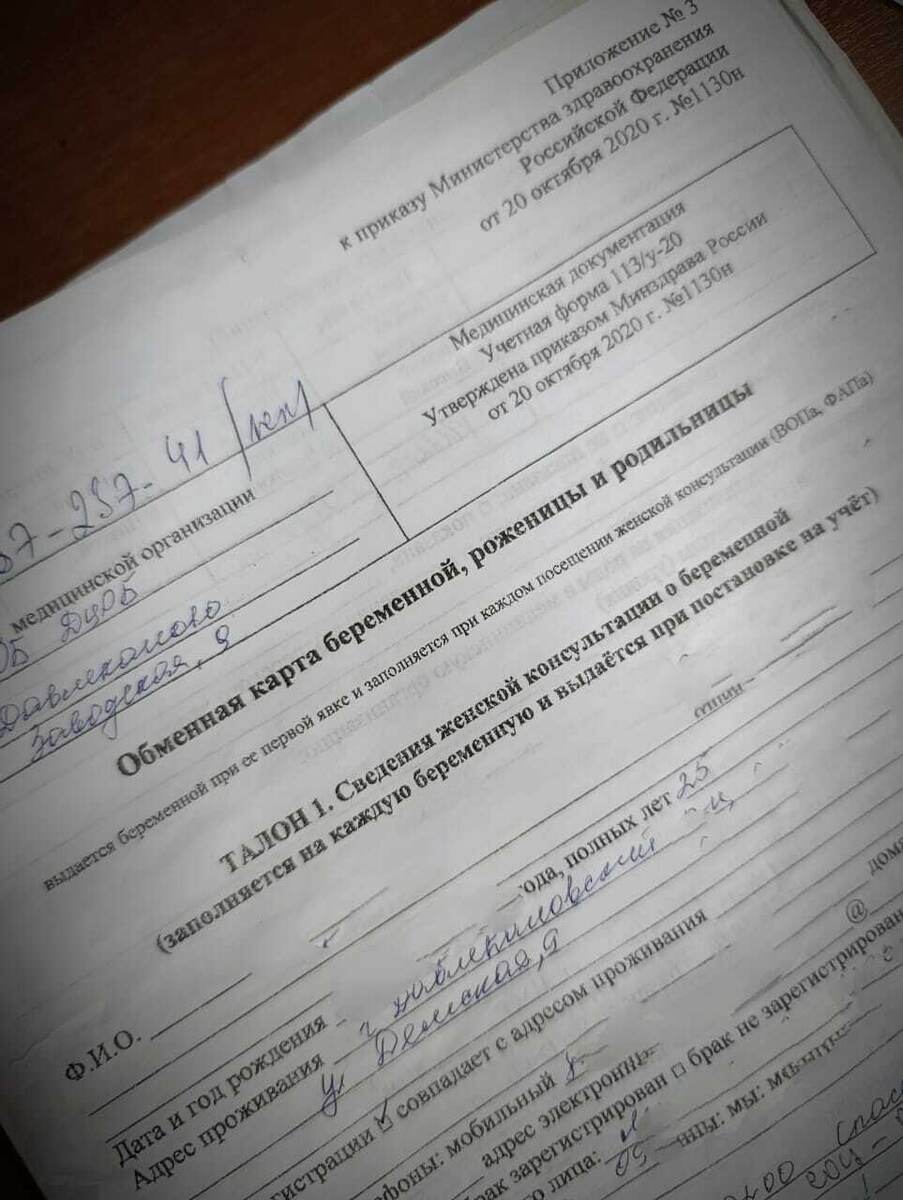 Приложение № 3
к приказу Министерства здравоохранения
Российской Федерации
от 20 октября 2020 г. №1130н
Медицинская документация
Учетная форма 113/у-20
Утверждена приказом Минздрава России
от 20 октября 2020 г. №1130н
57-257-41
медицинской организации
ОБ ДЦРБ
Давлеканово
Заводская, 9
Обменная карта беременной, роженицы и родильницы
выдается беременной при ее первой явке и заполняется при каждом посещении женской консультации (ВОПа, ФАПа)
ТАЛОН 1. Сведения женской консультации о беременной
(заполняется на каждую беременную и выдаётся при постановке на учёт)
Ф.И.О.
Дата и год рождения ода, полных лет 25
Адрес проживания
ул Демская, 9
гистрации совпадает с адресом проживания дома
фоны: мобильный
адрес электронн @
брак зарегистрирован □ брак не зарегистрирован
го лица: